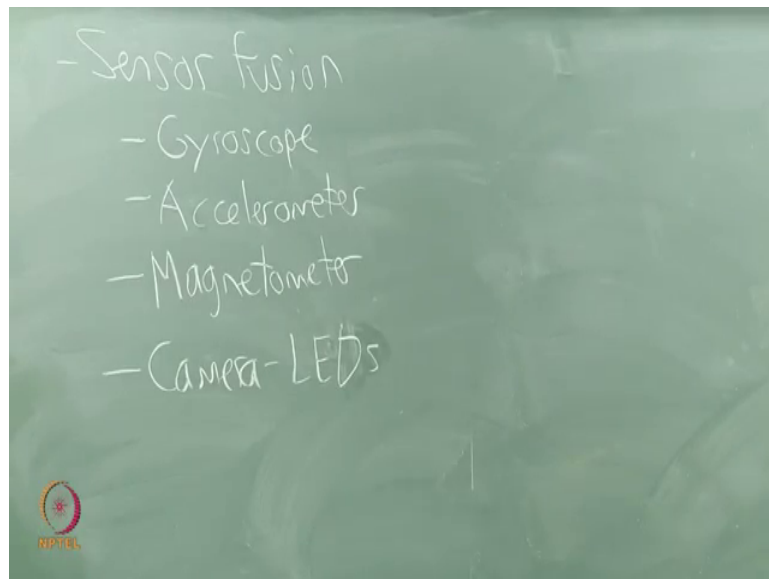 - Sensor fusion
- Gyroscope
- Accelerometer
- Magnetometer
- Camera-LEDs
NPTEL